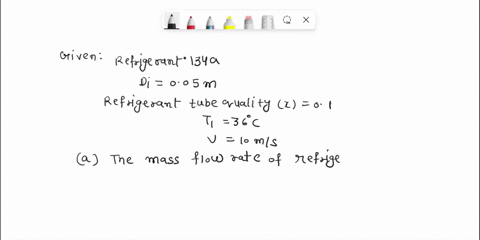 Given: Refrigerant 134a
Di = 0.05 m
Refrigerant tube quality (x) = 0.1
T1 = 36°C
V = 10 m/s
(a) The mass flow rate of refrige